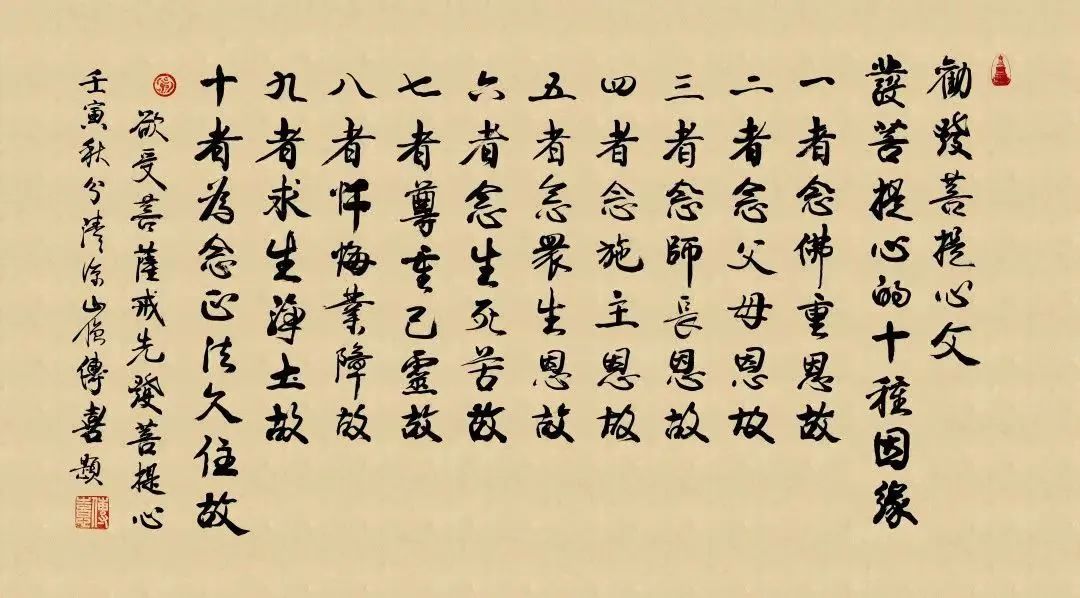 勸發菩提心文
發菩提心的十種因緣
一者念佛重恩故
二者念父母恩故
三者念師長恩故
四者念施主恩故
五者念眾生恩故
六者念生死苦故
七者尊重己靈故
八者懺悔業障故
九者求生淨土故
十者為念正法久住故
欲受菩薩戒先發菩提心
壬寅秋分清涼山 傳喜題
傳喜